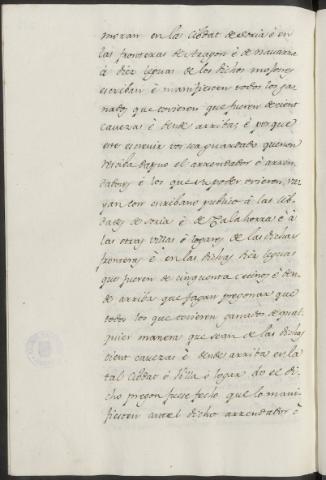 moran en la Cibdat de Soria è en
las fronteras de Aragon è de Navarra
à diez leguas de los dichos mojones
escriban è manifiesten todos los ga-
nados que tovieren que fueren de cient
cavezas è dende arriba, è porque
este escrevir sea guardado quando
el arrendador è arren-
dadores è los que su poder ovieren, va-
yan con escribano publico à las Cib-
dades de Soria è de Calahorra è à
las otras villas è logares de las dichas
fronteras è en las dichas diez leguas
que fueren de cinquenta vecinos è den-
de arriba que fagan pregonar que
todos los que tovieren ganados de qual-
quier manera que sean de las dichas
cient cavezas è dende arriba en la
tal Cibdat è Villa è logar do el di-
cho pregon fuese fecho que lo mani-
fiesten ante el dicho arrendador è